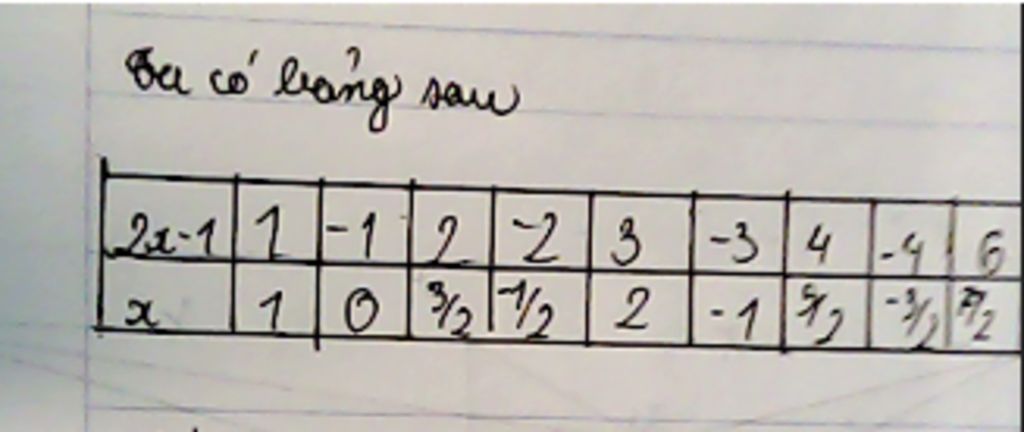 Ta có bảng sau
2x-1 1 -1 2 -2 3 -3 4 -4 6
x 1 0 3/2 -1/2 2 -1 5/2 -3/2 7/2